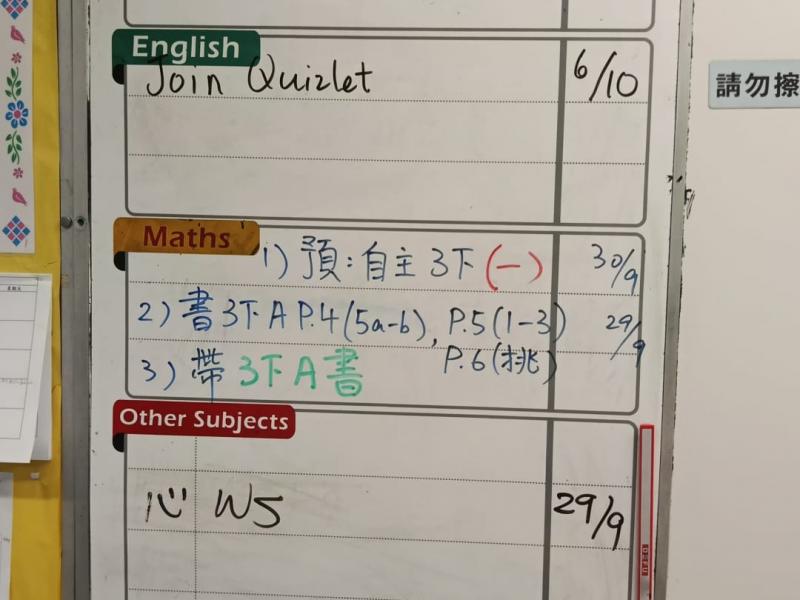 English
Join Quizlet 6/10
請勿擦
Maths
1) 預:自主 3下 (一) 30/9
2) 書 3下 A P.4 (5a-b), P.5 (1-3) 29/9
P.6 (挑)
3) 帶 3下 A 書
Other Subjects
心 W5 29/9